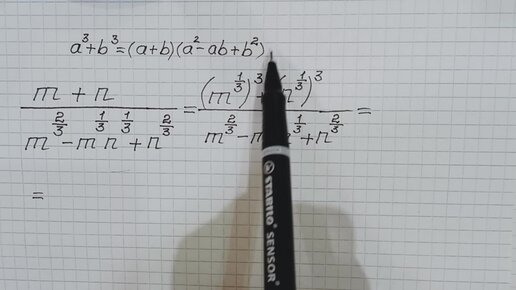 a³+b³=(a+b)(a²-ab+b²)
(m+n)/(m^(2/3)-m^(1/3)n^(1/3)+n^(2/3))=((m^(1/3))³+(n^(1/3))³)/(m^(2/3)-m^(1/3)n^(1/3)+n^(2/3))=
=
STABILO SENSOR